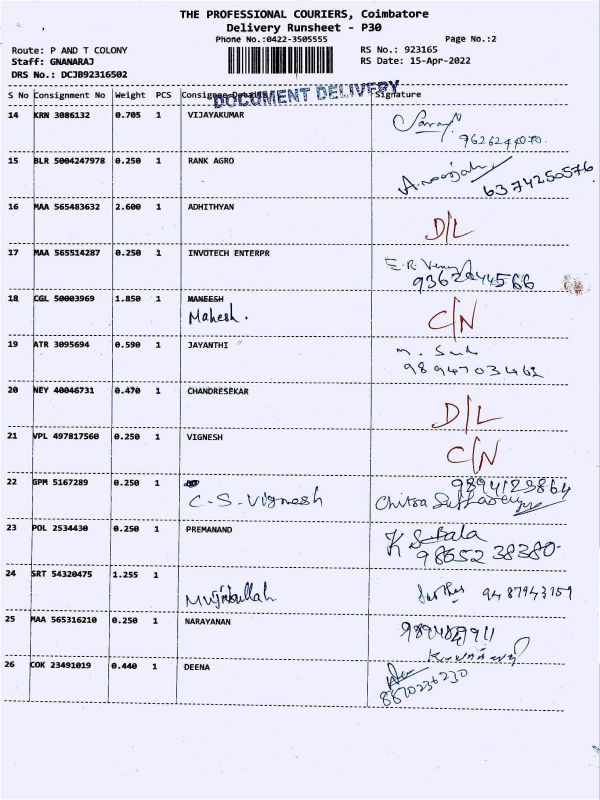 THE PROFESSIONAL COURIERS, Coimbatore
Delivery Runsheet - P30
Phone No.:0422-3505555 Page No.:2
Route: P AND T COLONY RS No.: 923165
Staff: GNANARAJ RS Date: 15-Apr-2022
DRS No.: DCJB92316502
DOCUMENT DELIVERY
S No Consignment No Weight PCS Consignee Details Signature
14 KRN 3086132 0.705 1 VIJAYAKUMAR
15 BLR 5004247978 0.250 1 RANK AGRO
6374250576
16 MAA 565483632 2.600 1 ADHITHYAN D/L
17 MAA 565514287 0.250 1 INVOTECH ENTERPR
18 CGL 50003969 1.850 1 MANEESH C/N
Mahesh.
19 ATR 3095694 0.590 1 JAYANTHI
9894703462
20 NEY 40046731 0.470 1 CHANDRESEKAR D/L
21 VPL 497817560 0.250 1 VIGNESH C/N
22 GPM 5167289 0.250 1 9894123864
C-S-Vignesh Chitra
23 POL 2534430 0.250 1 PREMANAND K S Bala
98652 38380
24 SRT 54320475 1.255 1
Mujibullah 9487943159
25 MAA 565316210 0.250 1 NARAYANAN
26 COK 23491019 0.440 1 DEENA
8870236230